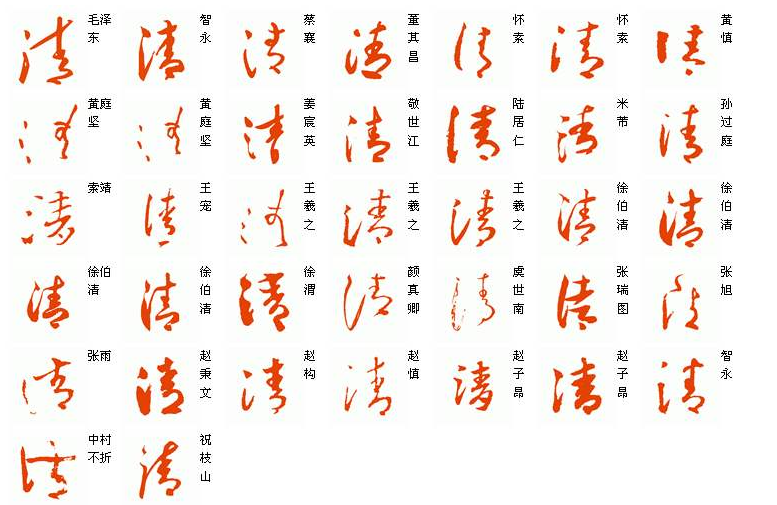 清 毛泽东 清 智永 清 蔡襄 清 董其昌 清 怀素 清 怀素 清 黄慎
清 黄庭坚 清 黄庭坚 清 姜宸英 清 敬世江 清 陆居仁 清 米芾 清 孙过庭
清 索靖 清 王宠 清 王羲之 清 王羲之 清 王羲之 清 徐伯清 清 徐伯清
清 徐伯清 清 徐伯清 清 徐渭 清 颜真卿 清 虞世南 清 张瑞图 清 张旭
清 张雨 清 赵秉文 清 赵构 清 赵慎 清 赵子昂 清 赵子昂 清 智永
清 中村不折 清 祝枝山